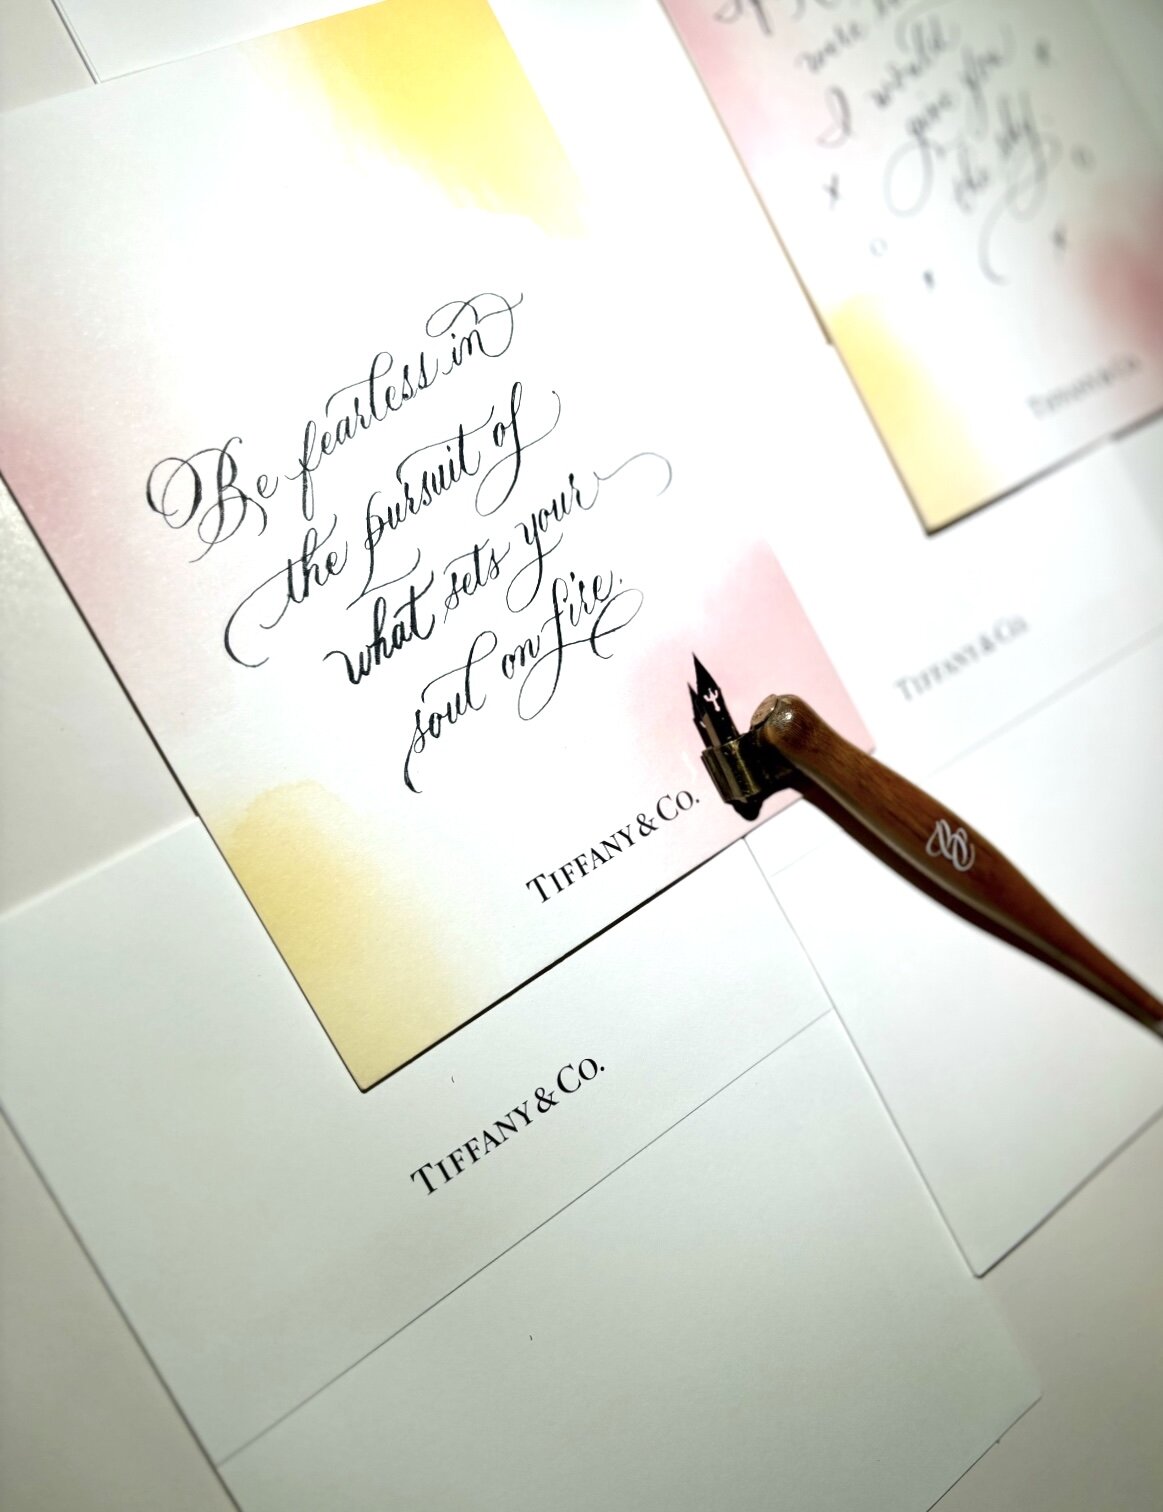 Be fearless in
the pursuit of
what sets your
soul on fire.
TIFFANY & CO.
TIFFANY & CO.
I would
give you
the sky
x
o
x
TIFFANY & CO.
TIFFANY & CO.